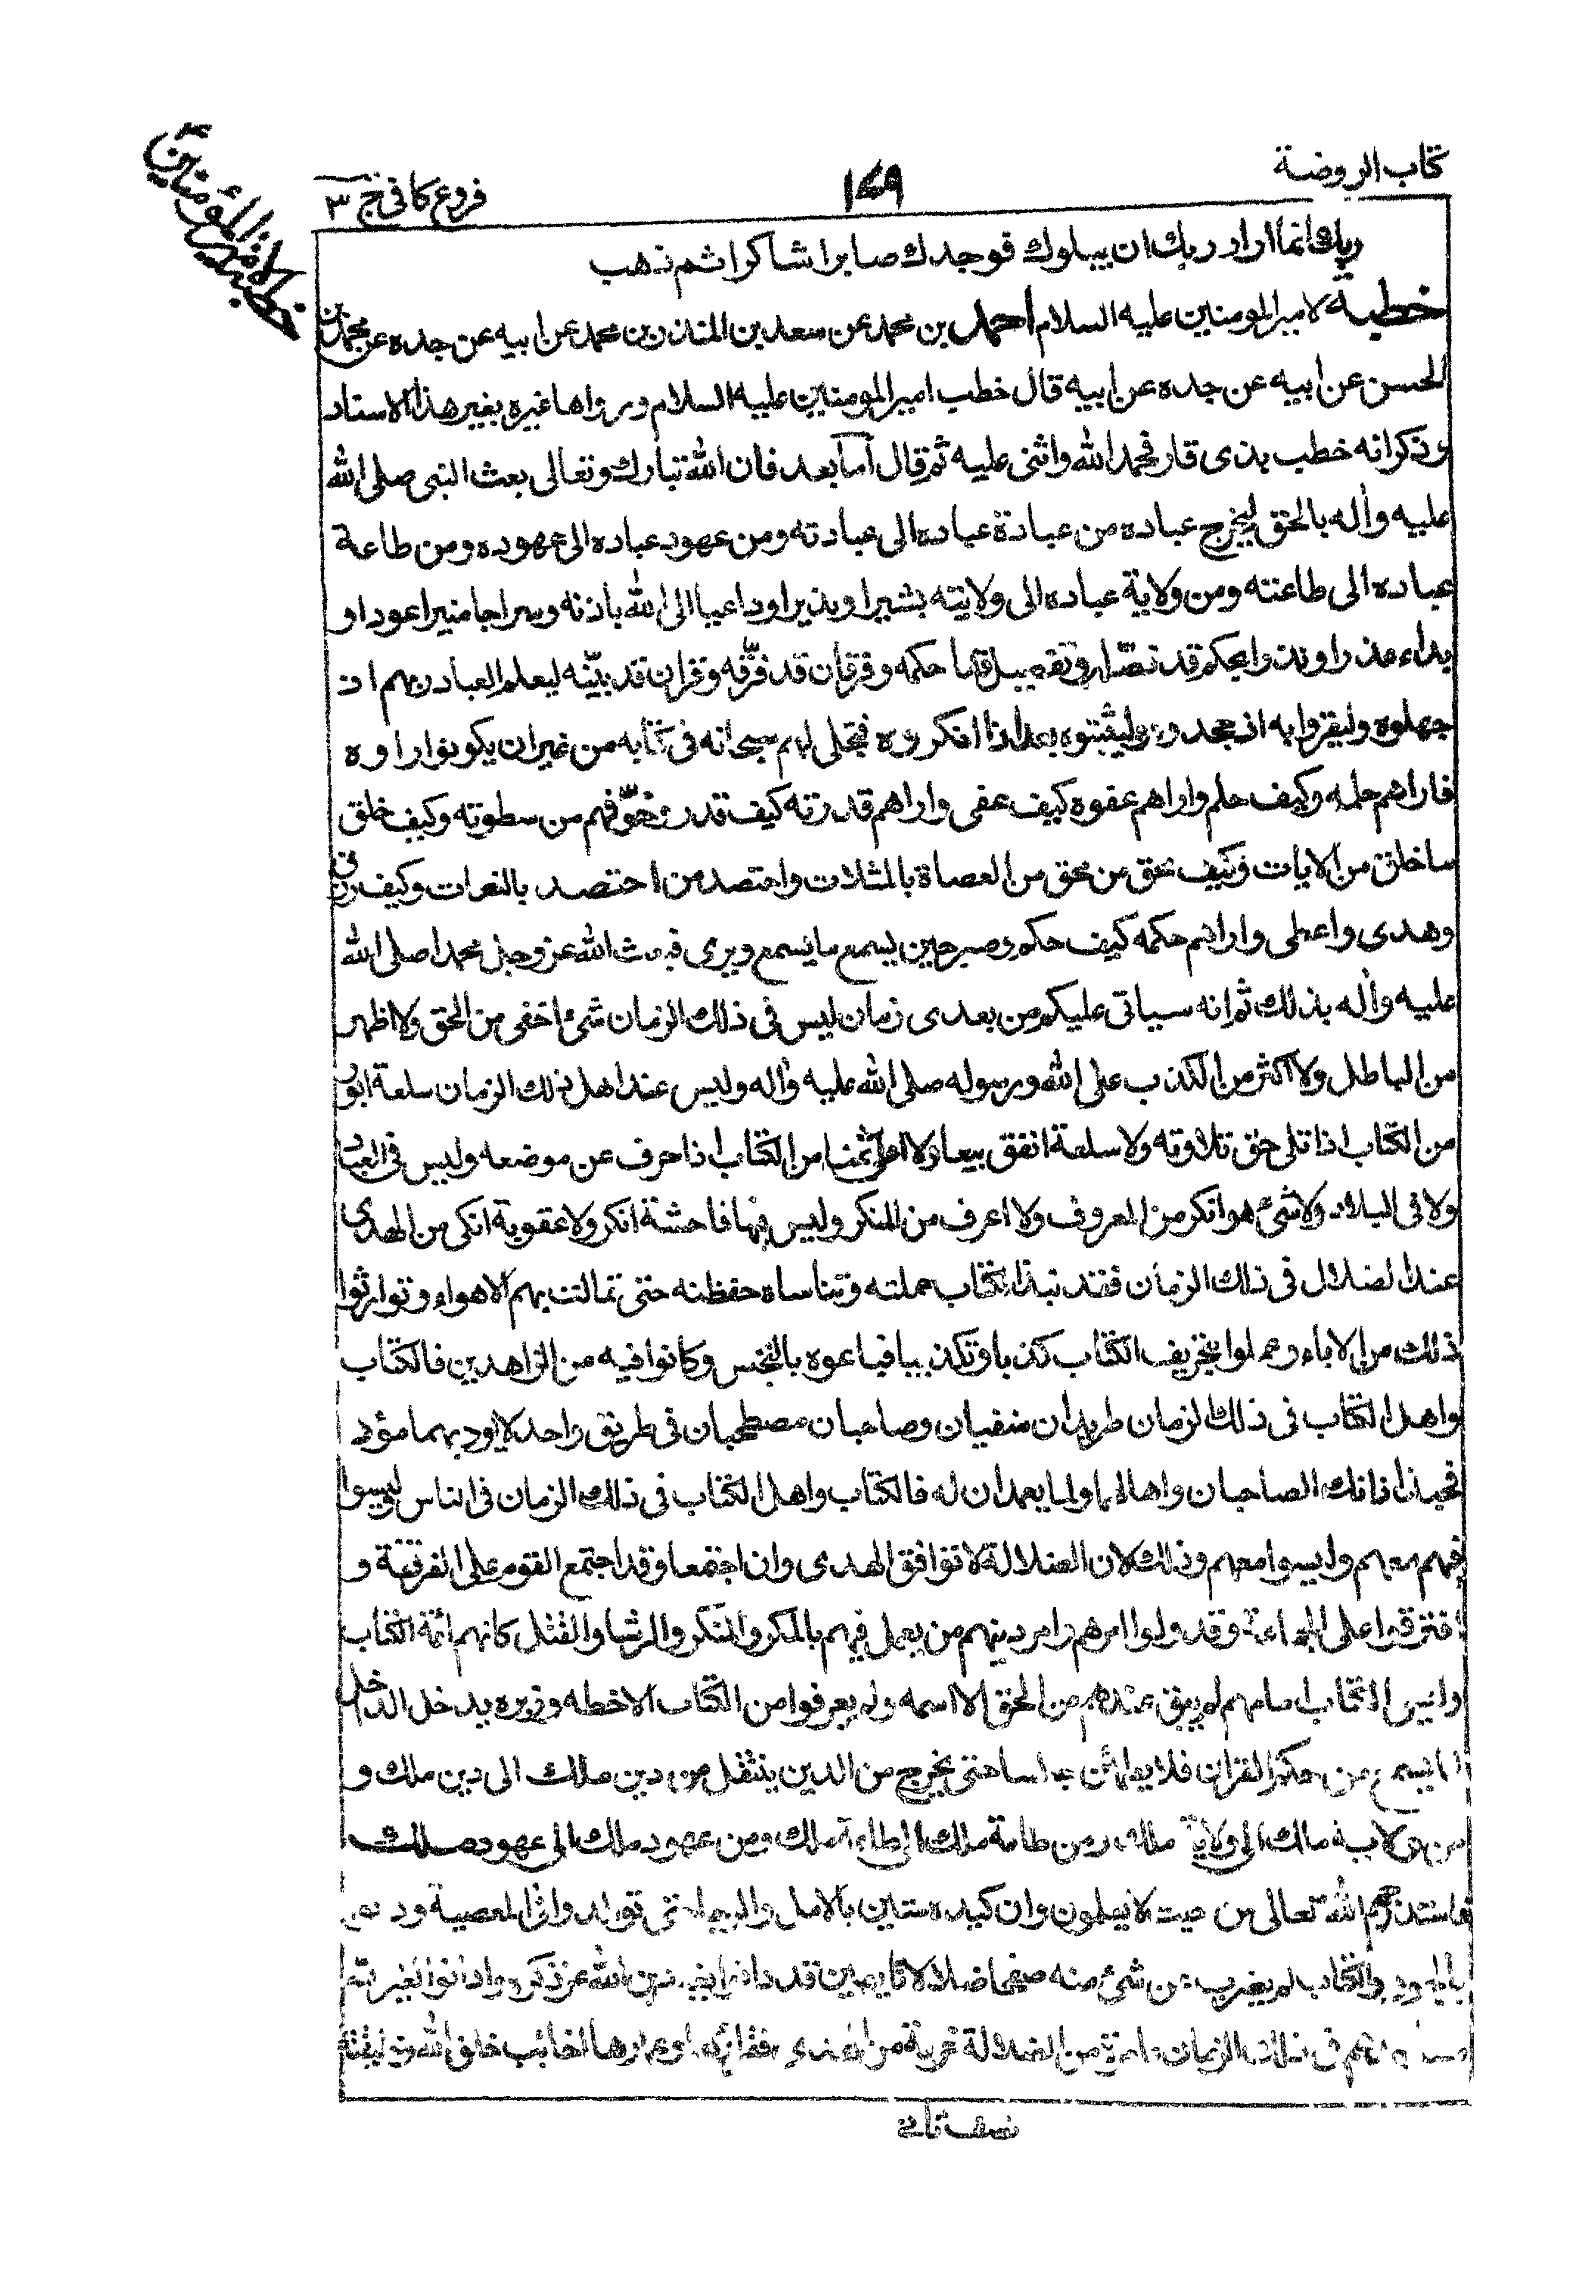 كتاب الروضة
١٧٩
فروع كافي ج ٣
خطبة لامير المؤمنين ع
ربك انما اراد ربك ان يبلوك فوجدك صابرا شاكرا ثم ذهب
خطبة لامير المومنين عليه السلام احمد بن محمد عن سعد بن المنذر بن محمد عن ابيه عن جده عن محمد بن
الحسن عن ابيه عن جده عن ابيه قال خطب امير المومنين عليه السلام ورواها غيره بغير هذا الاسناد
وذكر انه خطب بذى قار فحمد الله واثنى عليه ثم قال اما بعد فان الله تبارك وتعالى بعث النبى صلى الله
عليه وآله بالحق ليخرج عباده من عبادة عباده الى عبادته ومن عهود عباده الى عهوده ومن طاعة
عباده الى طاعته ومن ولاية عباده الى ولايته بشيرا ونذيرا وداعيا الى الله باذنه وسراجا منيرا عودا و
بداء عذرا ونذرا بحكم قد فصّله وتفصيل قد احكمه وفرقان قد فرّقه وقران قد بيّنه ليعلم العباد ربهم اذ
جهلوه وليقروا به اذ جحدوه وليثبتوه بعد اذا انكروه فتجلى لهم سبحانه فى كتابه من غير ان يكونوا راوه
فاراهم حلمه وكيف حلم واراهم عفوه كيف عفى واراهم قدرته كيف قدر وخوّفهم من سطوته وكيف خلق
ما خلق من الايات وكيف محق من محق من العصاة بالمثلات واحتصد من احتصد بالنقمات وكيف رزق
وهدى واعطى واراهم حكمه كيف حكم وصبر حين يسمع ما يسمع ويرى فبعث الله عز وجل محمدا صلى الله
عليه وآله بذلك ثم انه سياتى عليكم من بعدى زمان ليس فى ذلك الزمان شىء اخفى من الحق ولا اظهر
من الباطل ولا اكثر من الكذب على الله ورسوله صلى الله عليه وآله وليس عند اهل ذلك الزمان سلعة ابور
من الكتاب اذا تلى حق تلاوته ولا سلعة انفق بيعا ولا اغلى ثمنا من الكتاب اذا حرف عن موضعه وليس فى العباد
ولا فى البلاد ولا شىء هو انكر من المعروف ولا اعرف من المنكر وليس فيها فاحشة انكر ولا عقوبة انكى من الهدى
عند الضلال فى ذلك الزمان فقد نبذ الكتاب حملته وتناساه حفظته حتى تمالت بهم الاهواء وتوارثوا
ذلك من الاباء وعملوا بتحريف الكتاب كذبا وتكذيبا فباعوه بالبخس وكانوا فيه من الزاهدين فالكتاب
واهل الكتاب فى ذلك الزمان طريدان منفيان وصاحبان مصطحبان فى طريق واحد لا ياويهما مؤو
فحبذا ذانك الصاحبان واها لهما ولما يعمدان له فالكتاب واهل الكتاب فى ذلك الزمان فى الناس وليسوا
فيهم ومعهم وليسوا معهم وذلك لان الضلالة لا توافق الهدى وان اجتمعا وقد اجتمع القوم على الفرقة و
افترقوا على الجماعة وقد ولوا امرهم وامر دينهم من يعمل فيهم بالمكر والمنكر والرشا والقتل كانهم ائمة الكتاب
وليس الكتاب امامهم لم يبق عندهم من الحق الا اسمه ولم يعرفوا من الكتاب الا خطه وزبره يدخل الداخل
لما يسمع من حكم القران فلا يطمئن جالسا حتى يخرج من الدين ينتقل من دين ملك الى دين ملك و
من ولاية ملك الى ولاية ملك ومن طاعة ملك الى طاعة ملك ومن عهود ملك الى عهود ملك
فاستدرجهم الله تعالى من حيث لا يعلمون وان كيده متين بالامل والرجاء حتى توالدوا فى المعصية ودانوا
بالجور والكتاب لم يضرب عن شىء منه صفحا ضلالا تايهين قد دانوا بغير دين الله عز ذكره وادانوا لغير الله
فى ذلك الزمان عامرة من الضلالة خربة من الهدى فقراؤها وعمارها اخائب خلق الله وخليقته
نصف ثانى